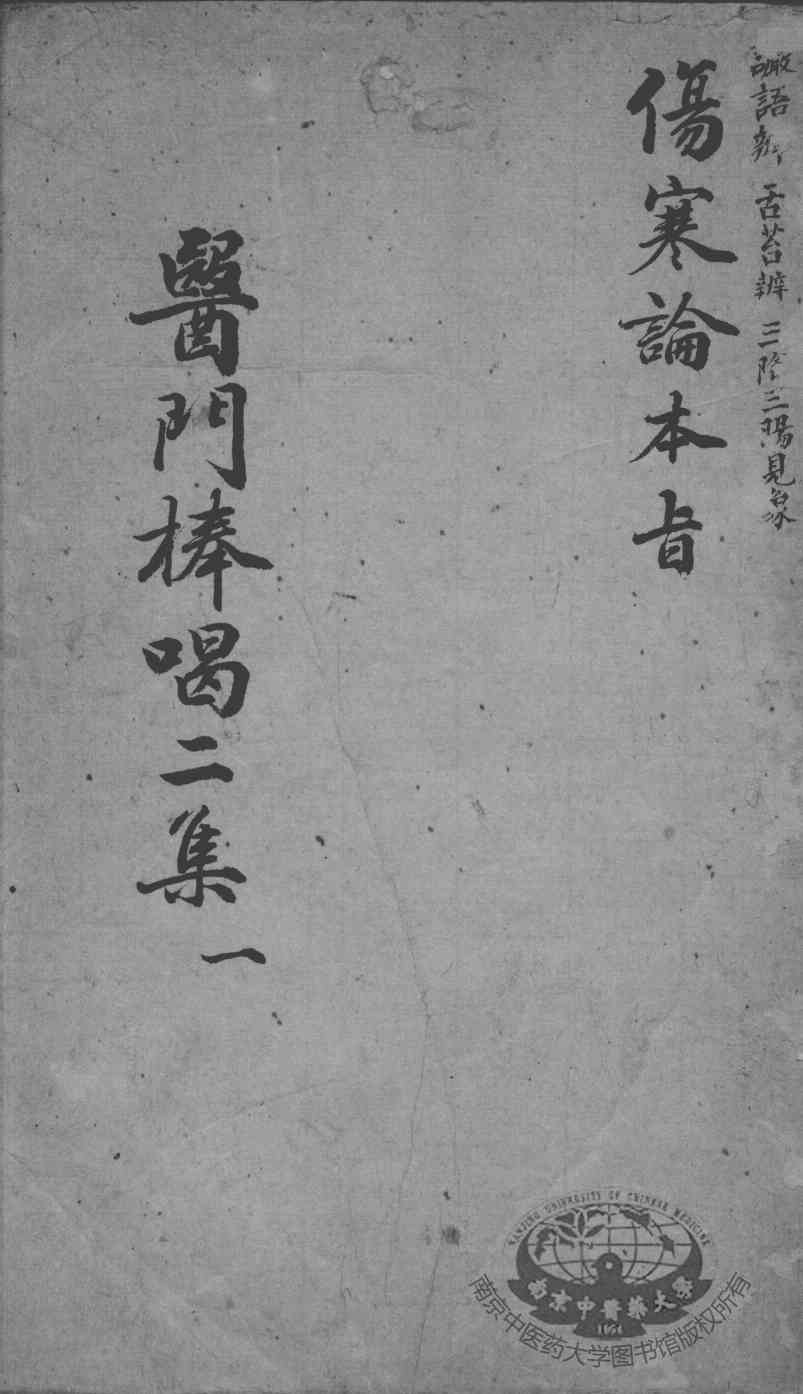 語 舌苔辨 三陰三陽見象
傷寒論本旨
醫門棒喝二集 一
NANJING UNIVERSITY OF CHINESE MEDICINE
南京中醫藥大學
南京中医药大学图书馆版权所有